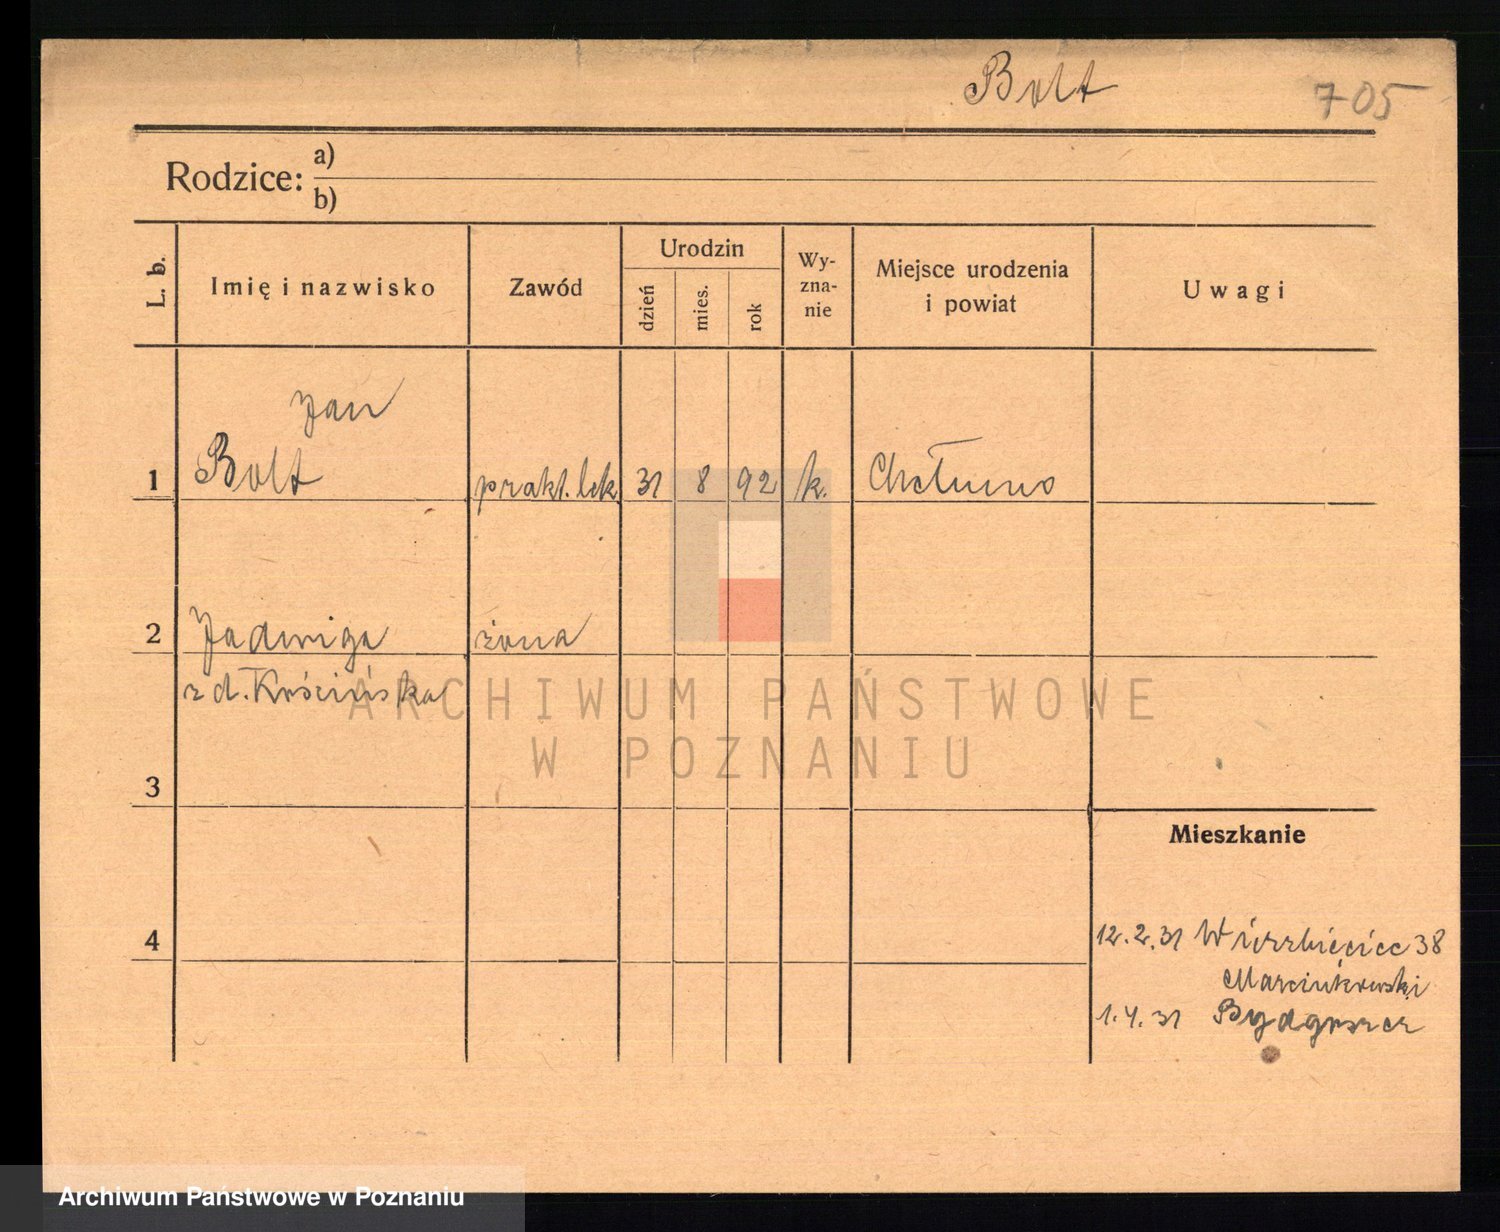 Bolt 705
Rodzice: a)
b)
L. b.
Imię i nazwisko
Zawód
Urodzin
dzień
mies.
rok
Wy-
zna-
nie
Miejsce urodzenia
i powiat
Uwagi
Jan
1 Bolt prakt. lek. 31 8 92 k. Chełmno
2 Jadwiga żona
z d. Kościńska
3
4
Mieszkanie
12.2.31 Wierzbięcice 38
Marcinkowski
1.4.31 Bydgoszcz
ARCHIWUM PAŃSTWOWE
W POZNANIU
Archiwum Państwowe w Poznaniu